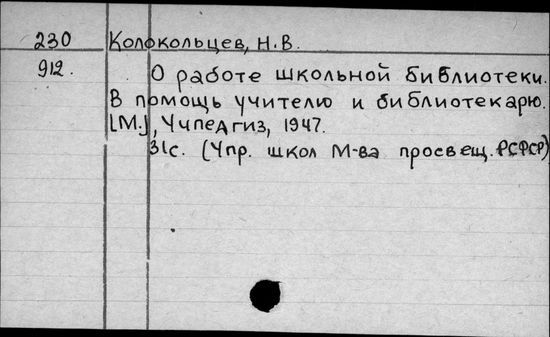 230 Колокольцев, Н.В.
912. О работе школьной библиотеки.
В помощь учителю и библиотекарю.
[М.], Учпедгиз, 1947.
31с. (Упр. школ М-ва просвещ. РСФСР)